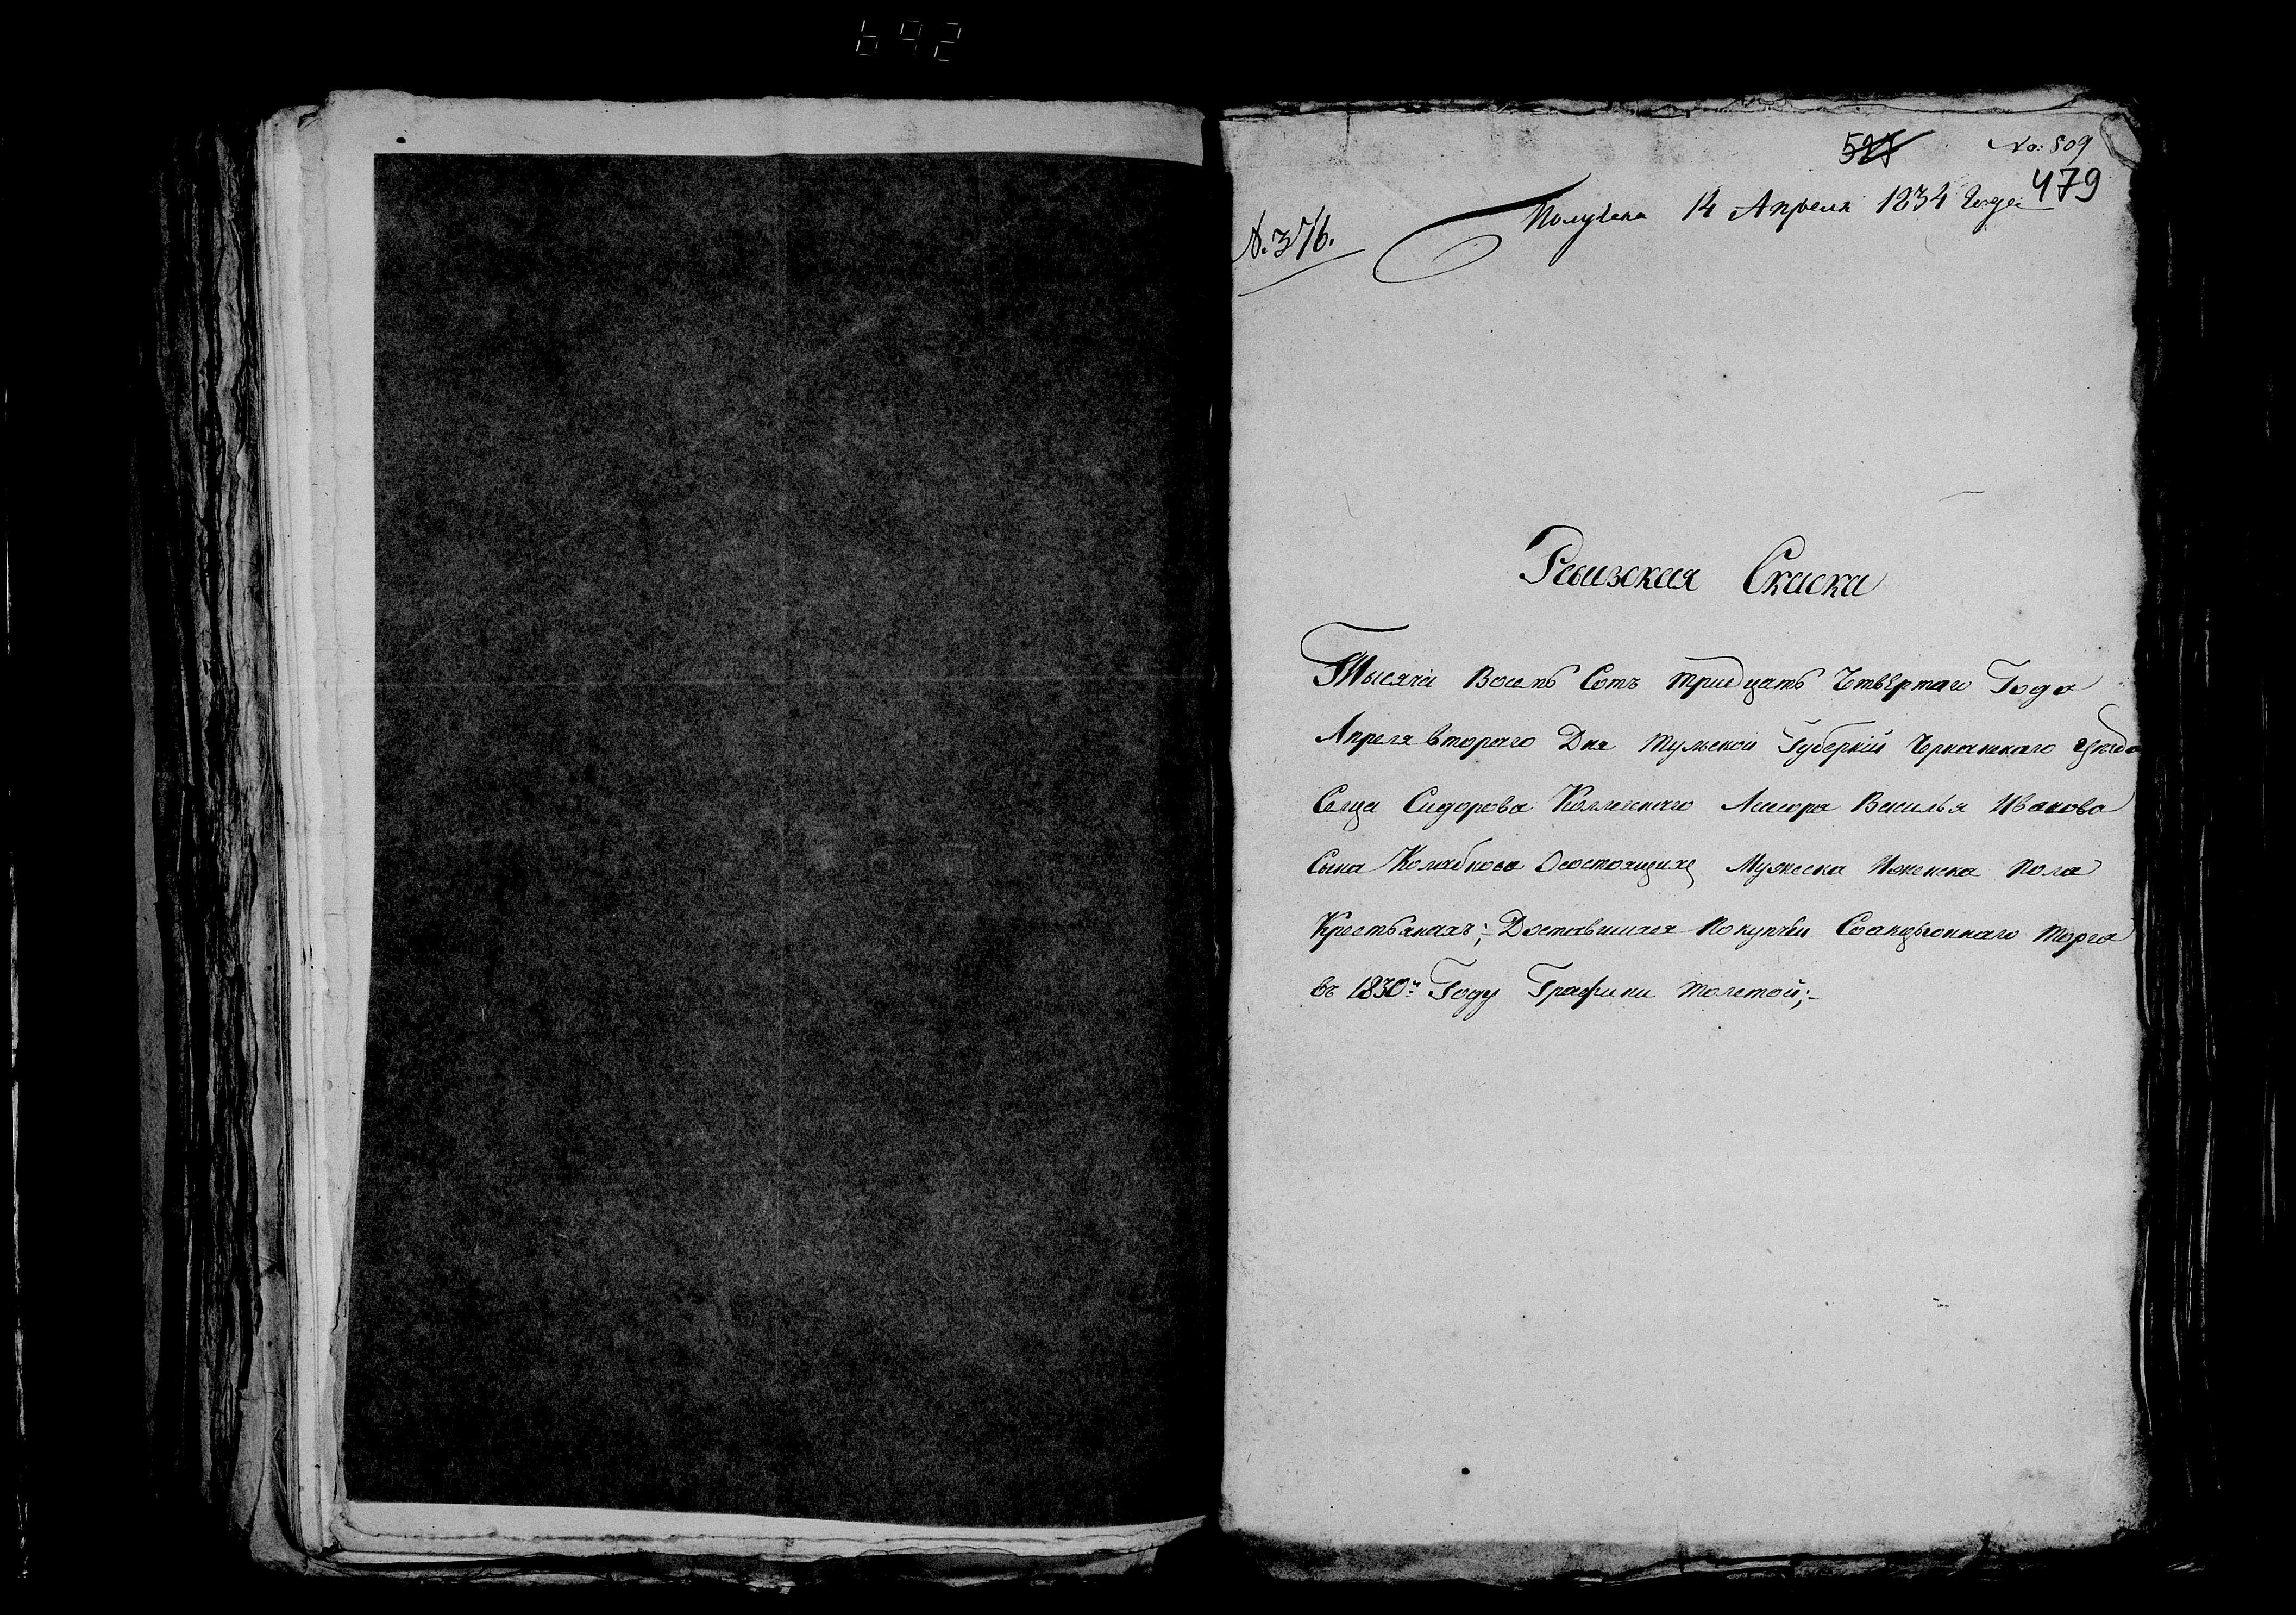 692
521
No: 509
479
Получена 14 Апреля 1834 Года
№. 376.
Ревизская Скаска
Тысяча Восемь Сотъ тридцать Четвертаго Года
Апреля второго Дня Тульской Губернiи Чернскаго уезда
Сельца Сидорова Коллежскаго Асесора Василья Иванова
Сына Колабкова Осостоящихъ Мужеска Иженска Пола
Крестьянахъ; Доставшихся Покупкѣи Соакцыоннаго Торга
въ 1830м Году Графини Толстой;